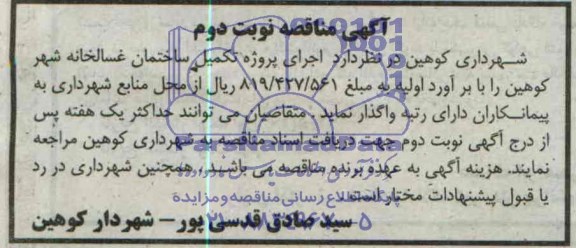 آگهی مناقصه نوبت دوم
شهرداری کوهین در نظردارد اجرای پروژه تکمیل ساختمان غسالخانه شهر
کوهین را با بر آورد اولیه به مبلغ ۸۱۹/۴۲۷/۵۶۱ ریال از محل منابع شهرداری به
پیمانکاران دارای رتبه واگذار نماید . متقاضیان می توانند حداکثر یک هفته پس
از درج آگهی نوبت دوم جهت دریافت اسناد مناقصه به شهرداری کوهین مراجعه
نمایند. هزینه آگهی به عهده برنده مناقصه می باشد. همچنین شهرداری در رد
یا قبول پیشنهادات مختار است.
پایگاه اطلاع رسانی مناقصه و مزایده
سید صادق قدسی پور – شهردار کوهین